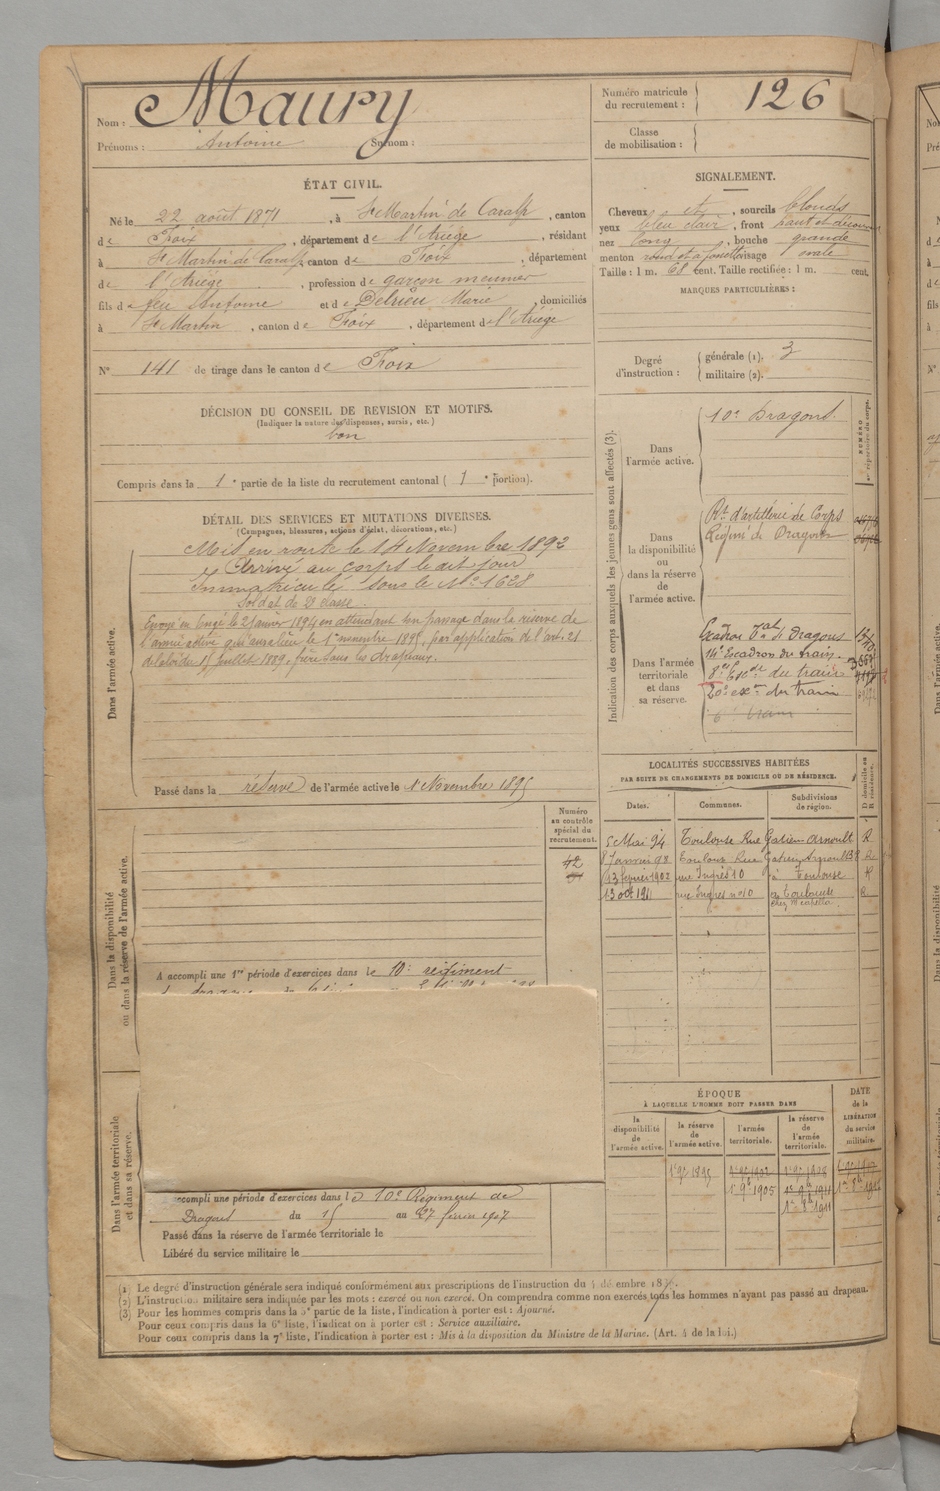 Nom : Maury
Prénoms : Antoine Surnom :
Numéro matricule du recrutement : 126
Classe de mobilisation :
ÉTAT CIVIL.
Né le 22 août 1871, à St Martin de Caralp, canton
de Foix, département de l'Ariège, résidant
à St Martin de Caralp, canton de Foix, département
de l'Ariège, profession de garçon meunier
fils de feu Antoine et de Delrieu Marie, domiciliés
à St Martin, canton de Foix, département de l'Ariège
N° 141 de tirage dans le canton de Foix
SIGNALEMENT.
Cheveux et, sourcils blonds
yeux bleu clair, front haut et découvert
nez long, bouche grande
menton rond et à fossette visage ovale
Taille : 1 m. 68 cent. Taille rectifiée : 1 m. cent.
MARQUES PARTICULIÈRES :
Degré d'instruction : générale (1). 3
militaire (2).
DÉCISION DU CONSEIL DE REVISION ET MOTIFS.
(Indiquer la nature des dispenses, sursis, etc.)
bon
Compris dans la 1e partie de la liste du recrutement cantonal ( 1e portion).
DÉTAIL DES SERVICES ET MUTATIONS DIVERSES.
(Campagnes, blessures, actions d'éclat, décorations, etc.)
Dans l'armée active.
Mis en route le 14 Novembre 1892
Arrivé au corps le dit jour
Immatriculé sous le N° 1628
Soldat de 2e classe.
Envoyé en congé le 2 janvier 1894 en attendant son passage dans la réserve de
l'armée active qui aura lieu le 1er novembre 1895, par application de l'art. 21
de la loi du 15 juillet 1889, frère sous les drapeaux.
Passé dans la réserve de l'armée active le 1 Novembre 1895
Indication des corps auxquels les jeunes gens sont affectés (3).
NUMÉRO au répertoire du corps.
Dans l'armée active.
10e Dragons.
Dans la disponibilité ou dans la réserve de l'armée active.
Rt d'artillerie de Corps
Régiment de Dragons
Dans l'armée territoriale et dans sa réserve.
Escadron Tal de Dragons
14e Escadron du train.
8e Escon du train
20e escon du train
train
LOCALITÉS SUCCESSIVES HABITÉES
PAR SUITE DE CHANGEMENTS DE DOMICILE OU DE RÉSIDENCE.
D domicile ou R résidence.
Dates. Communes. Subdivisions de région.
5 Mai 94 Toulouse Rue Gatien Arnoult R
8 Janvier 98 Toulouse Rue Gatien Arnoult R
13 février 1902 rue Ingres 10 à Toulouse R
13 oct 1911 rue Ingres n° 10 à Toulouse R
Dans la disponibilité ou dans la réserve de l'armée active.
Numéro au contrôle spécial du recrutement.
42
A accompli une 1re période d'exercices dans le 10e régiment
Dans l'armée territoriale et dans sa réserve.
ccompli une période d'exercices dans le 10e Régiment de
Dragons du 15 au 27 février 1907
Passé dans la réserve de l'armée territoriale le
Libéré du service militaire le
ÉPOQUE
À LAQUELLE L'HOMME DOIT PASSER DANS
la disponibilité de l'armée active.
la réserve de l'armée active.
l'armée territoriale.
la réserve de l'armée territoriale.
DATE de la LIBÉRATION du service militaire.
1er 9bre 1895
1er 9bre 1905 1er 9bre 1911
(1) Le degré d'instruction générale sera indiqué conformément aux prescriptions de l'instruction du 4 décembre 18
(2) L'instruction militaire sera indiquée par les mots : exercé ou non exercé. On comprendra comme non exercés tous les hommes n'ayant pas passé au drapeau.
(3) Pour les hommes compris dans la 5e partie de la liste, l'indication à porter est : Ajourné.
Pour ceux compris dans la 6e liste, l'indication à porter est : Service auxiliaire.
Pour ceux compris dans la 7e liste, l'indication à porter est : Mis à la disposition du Ministre de la Marine. (Art. 4 de la loi.)